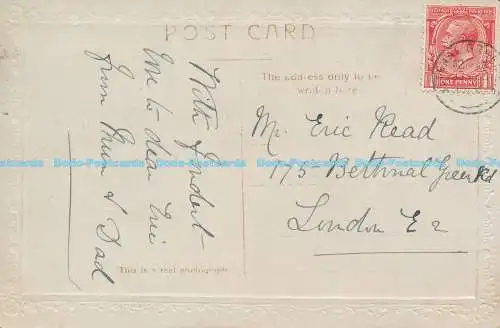 POST CARD
The address only to be
written here
With fondest
love to dear Eric
from Mum & Dad
This is a real photograph
Mr. Eric Read
175 - Bethnal Green Rd
London E2
ONE PENNY
Dodo-Postcards Dodo-Postcards Dodo-Postcards Dodo-Postcards Dodo-Postcards